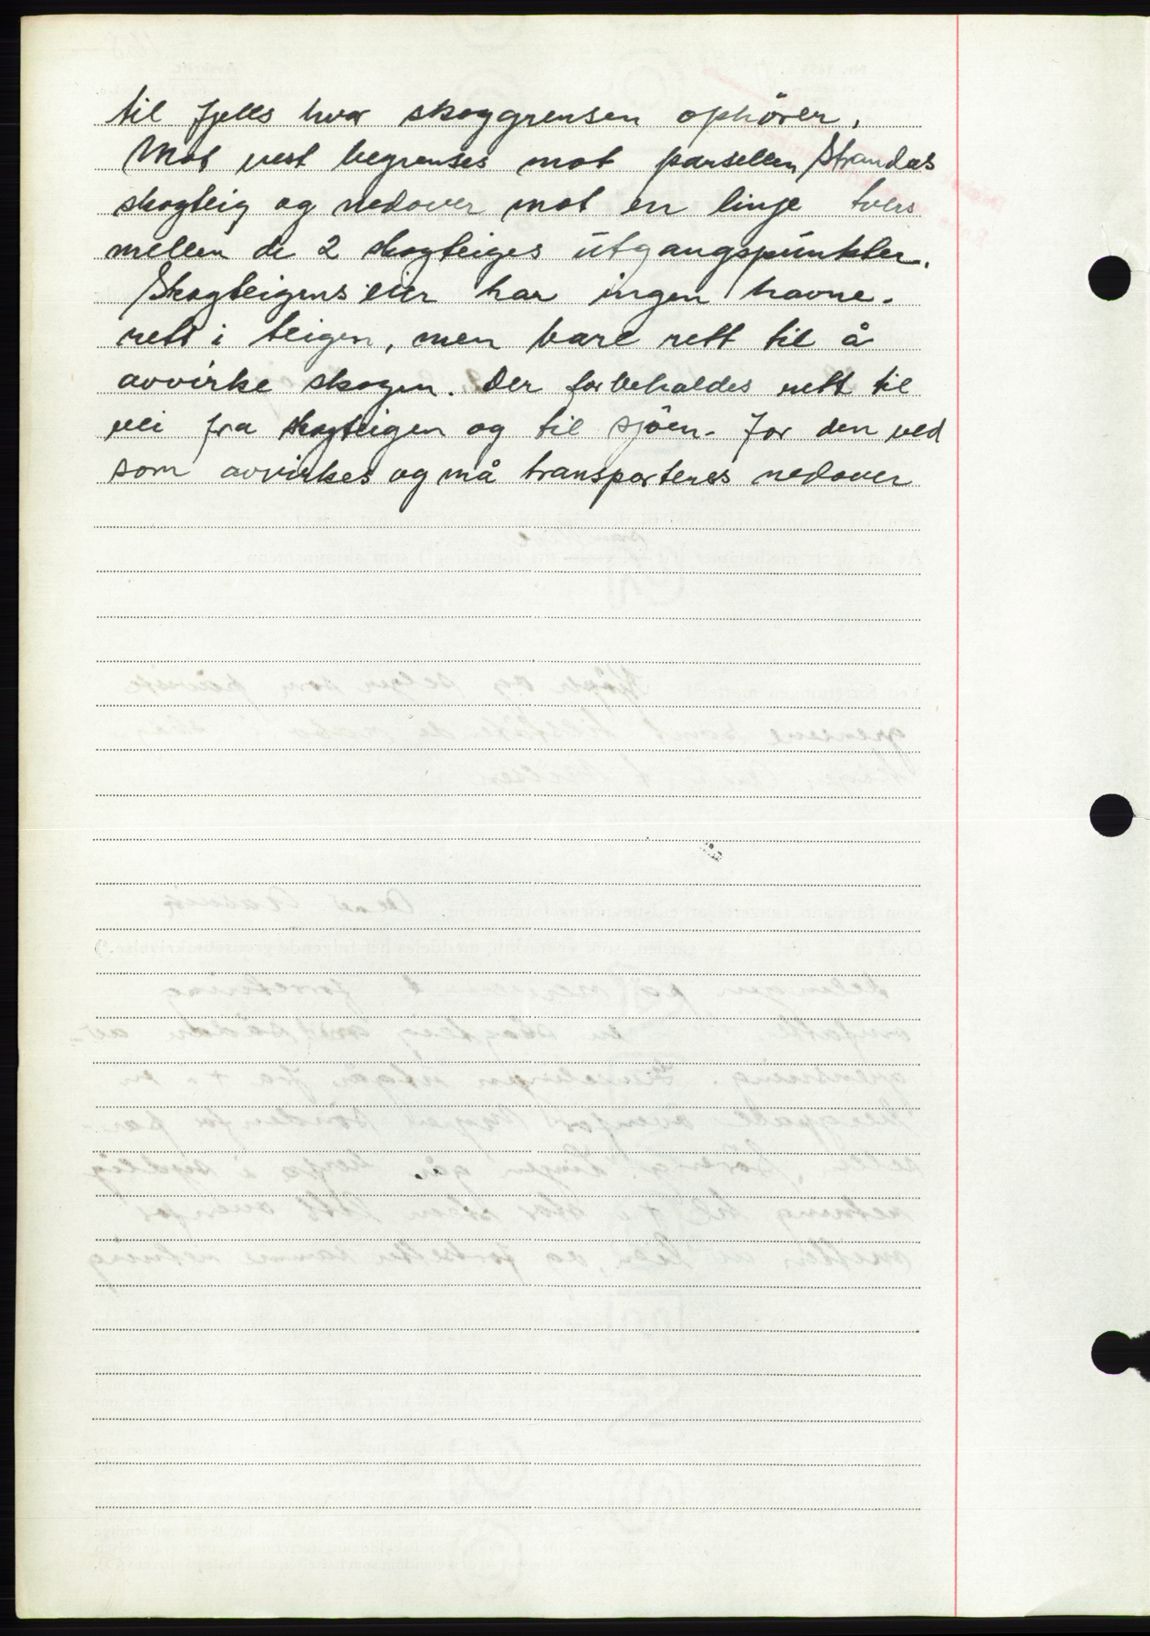 til fjells hvor skoggrensen ophörer.
Mot vest begrenses mot parsellen Strandas
skogteig og nedover mot en linje tvers
mellem de 2 skogteiges utgangspunkter.
Skogteigens eier har ingen havne-
rett i teigen, men bare rett til å
avvirke skogen. Der forbeholdes rett til
vei fra skogteigen og til sjöen. for den ved
som avvirkes og må transporteres nedover